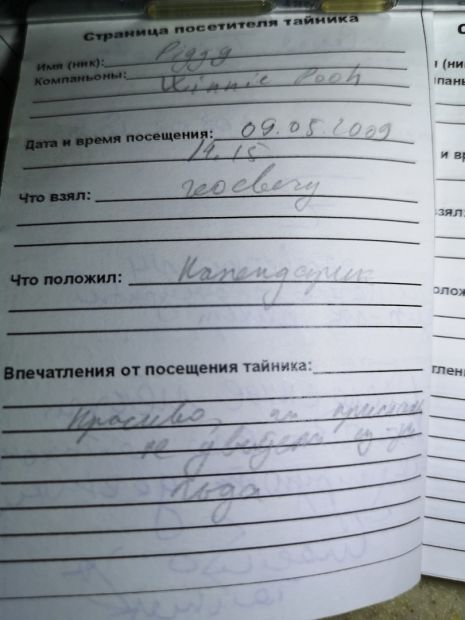 Страница посетителя тайника
Имя (ник): Piggy
Компаньоны: Winnie Pooh
Дата и время посещения: 09.05.2009
14.15
Что взял: геосвечу
Что положил: Календарик
Впечатления от посещения тайника:
Красиво,
не из-за
льда